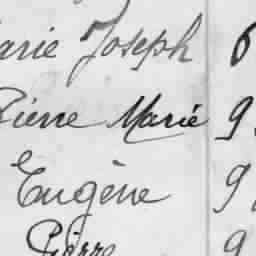 arie Joseph 6
Pierre Marie 9
Eugène 9
Pierre 9